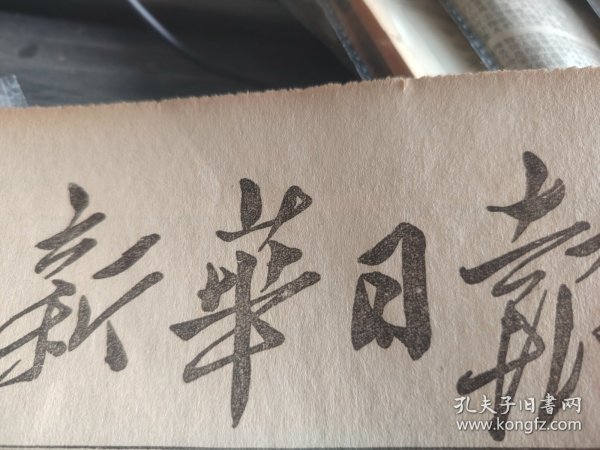 新華日報
孔夫子旧書网
www.kongfz.com